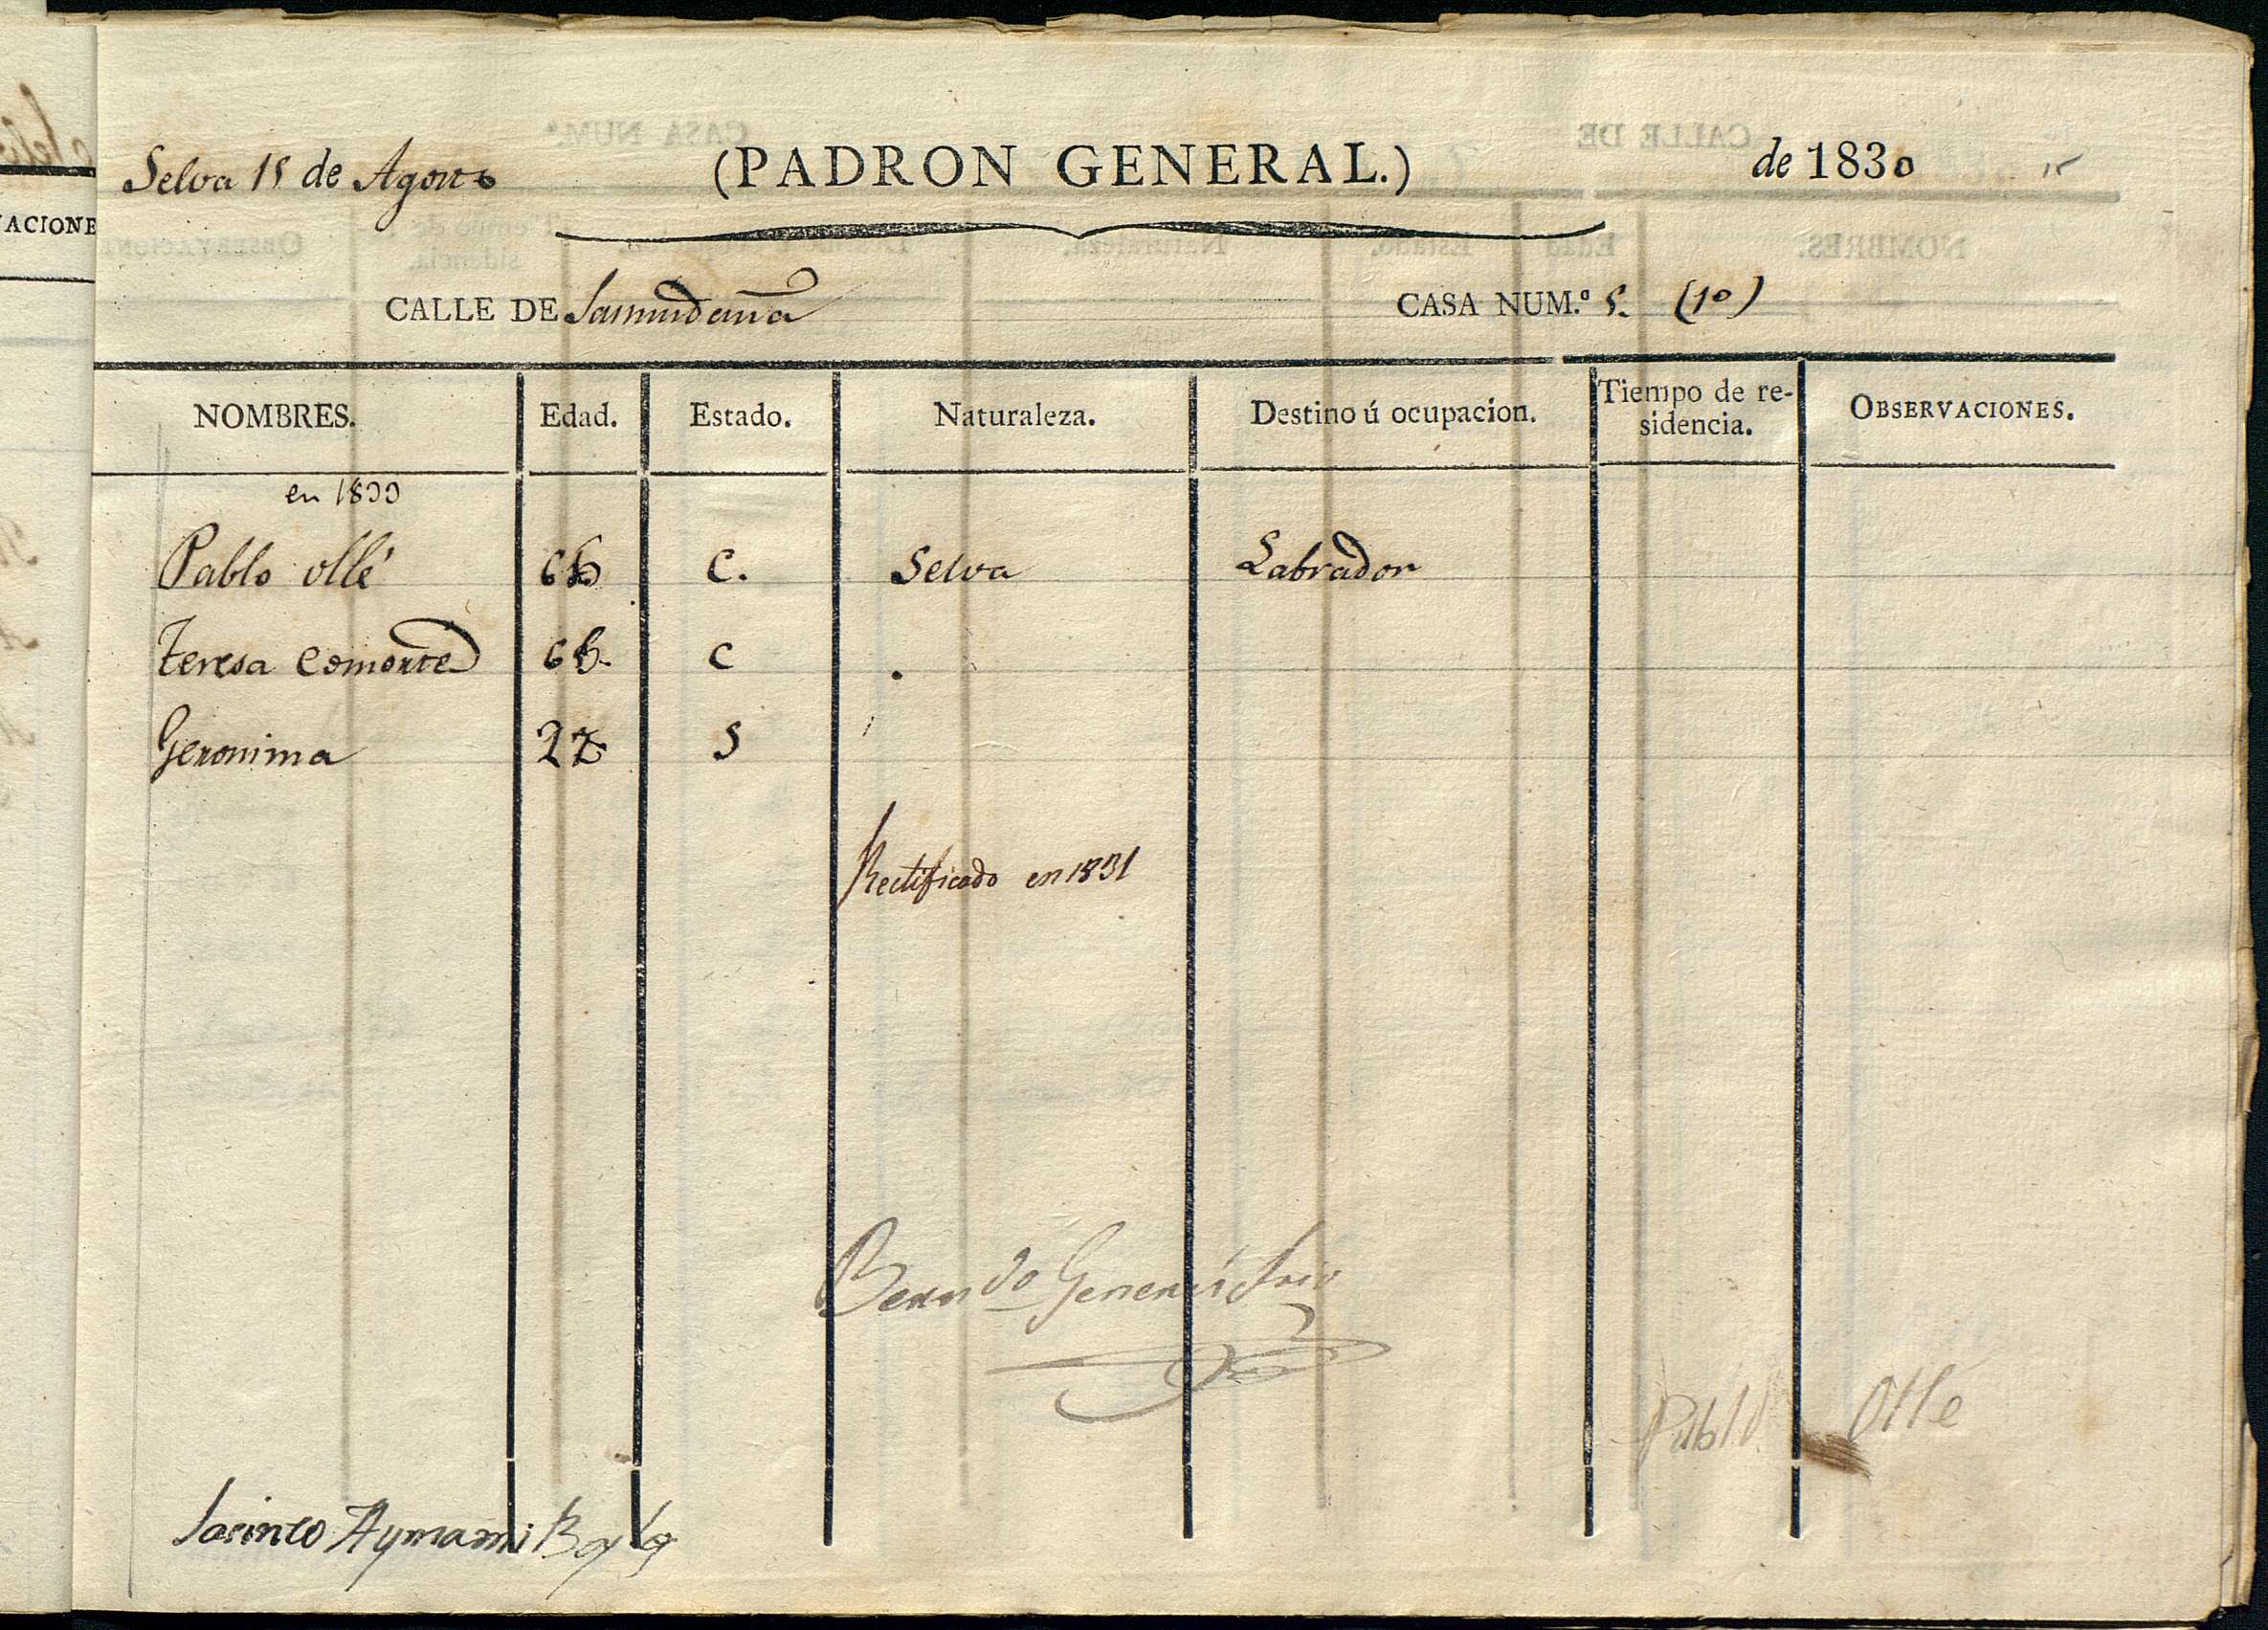 Selva 15 de Agosto (PADRON GENERAL.) de 1830 15
CALLE DE CASA NUM.º 5. (10)
NOMBRES. Edad. Estado. Naturaleza. Destino ú ocupacion. Tiempo de re-
sidencia. OBSERVACIONES.
en 1833
Pablo ollé C. Selva Labrador
Teresa C
Geronima S
Rectificado en 1831
Pablo Ollé
Jacinto Aymami Bayle
VACIONE